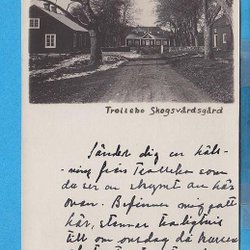 Trollebo Skogsvårdsgård
Sänder dig en häls-
ning från Trollebo som
du ser en skymt av här
ovan. Befinner mig på ett
här, stannar troligtvis
till om onsdag då kursen